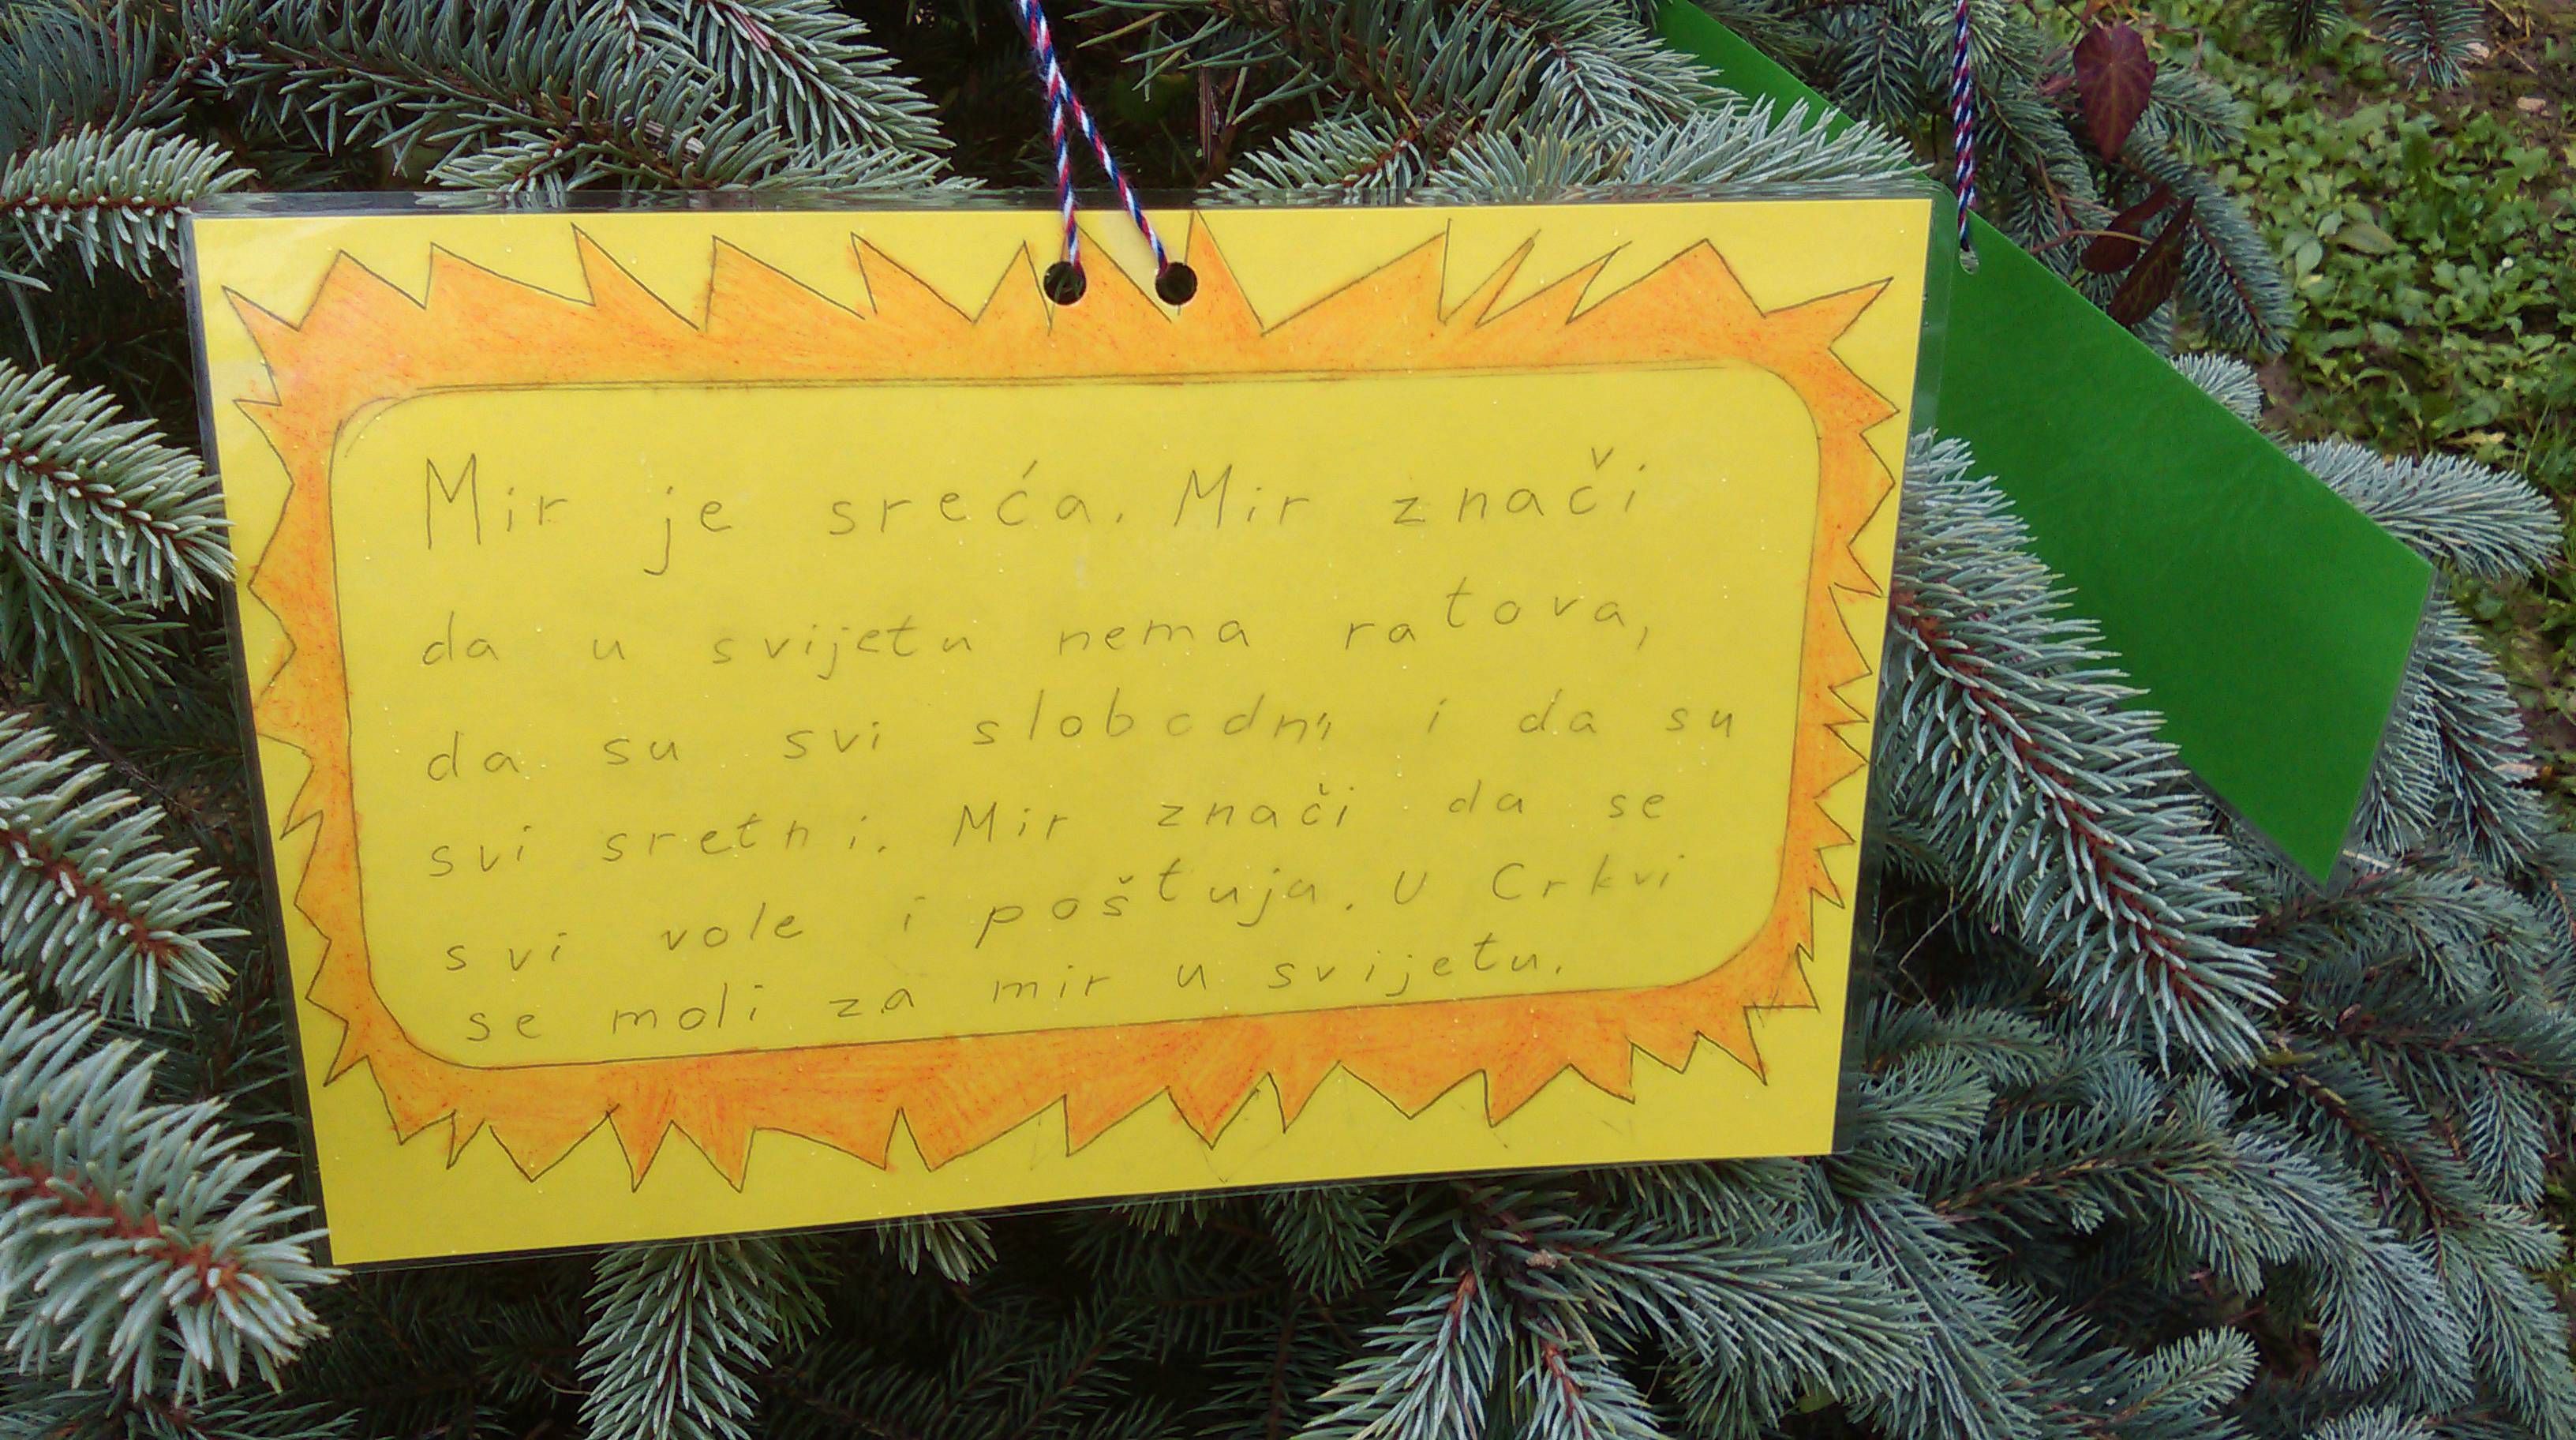 Mir je sreća. Mir znači
da u svijetu nema ratova,
da su svi slobodni i da su
svi sretni. Mir znači da se
svi vole i poštuja. U Crkvi
se moli za mir u svijetu.